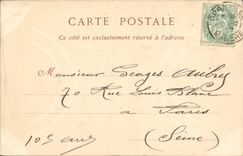 CARTE POSTALE
Ce côté est exclusivement réservé à l'adresse
Monsieur Georges Aubry
70 Rue Louis Blanc
à Paris
(Seine)